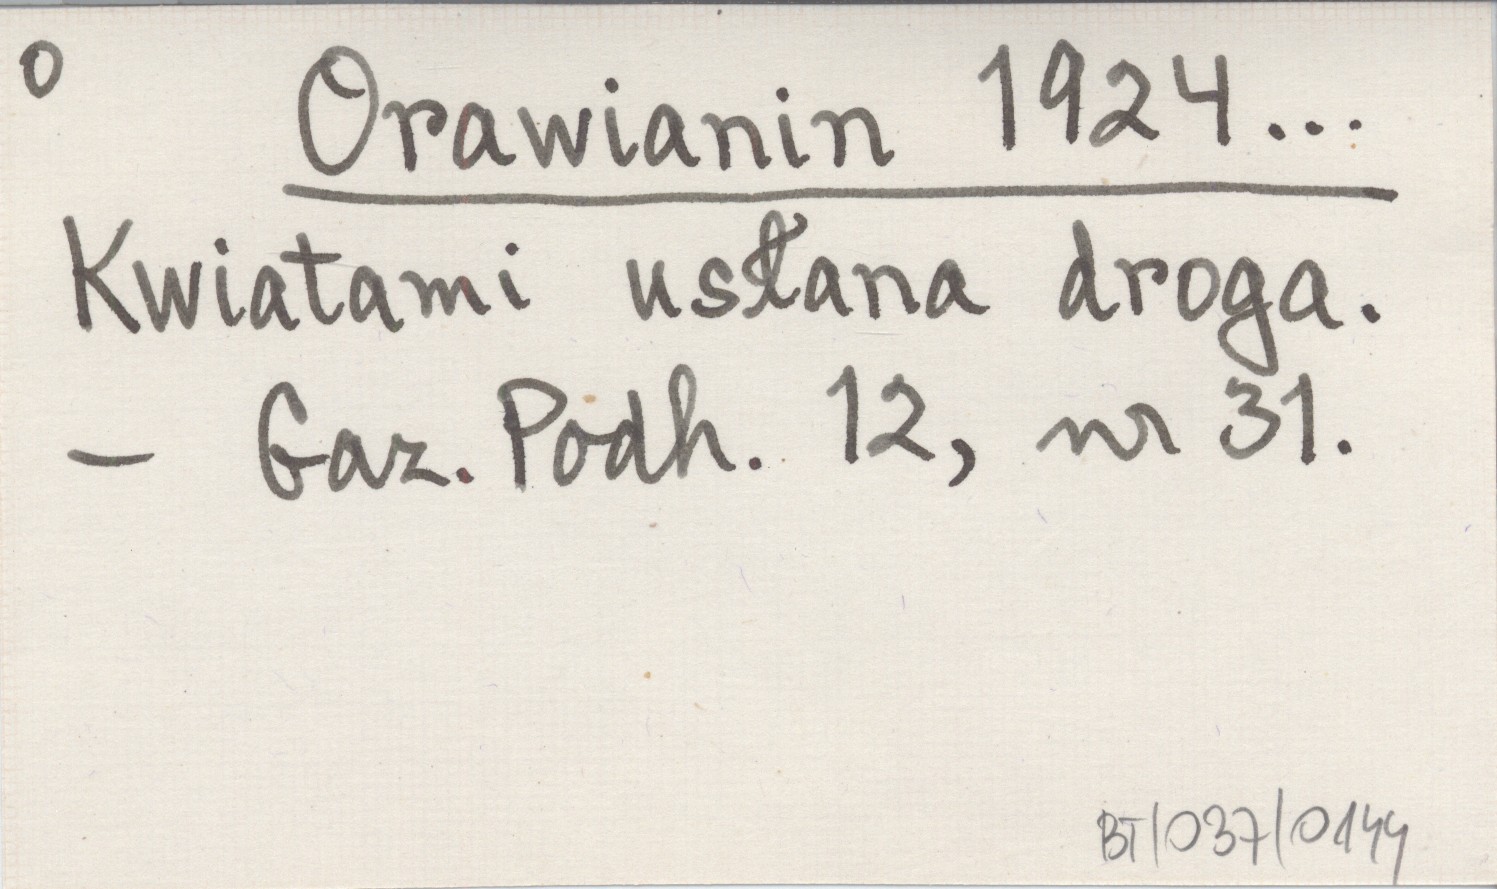 o Orawianin 1924...
Kwiatami usłana droga.
— Gaz. Podh. 12, nr 31.
BT/037/0144